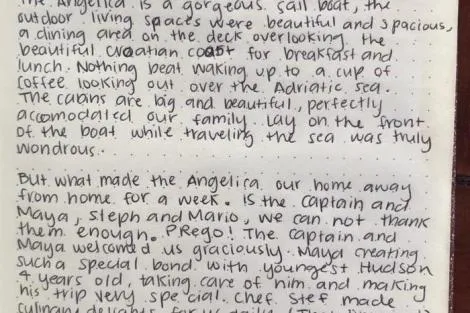 The Angelica is a gorgeous sail boat, the
outdoor living spaces were beautiful and spacious,
a dining area on the deck overlooking the
beautiful croatian coast for breakfast and
lunch. Nothing beat waking up to a cup of
coffee looking out over the Adriatic sea.
The cabins are big and beautiful, perfectly
accomodated our family. Lay on the front
of the boat while traveling the sea was truly
wondrous.
But what made the Angelica our home away
from home for a week. is the captain and
Maya, Steph and Mario, we can not thank
them enough. PRego! The captain and
Maya welcomed us graciously. Maya creating
such a special bond with youngest Hudson
4 years old, taking care of him and making
his trip very special. Chef. Stef made
culinary delights for us daily